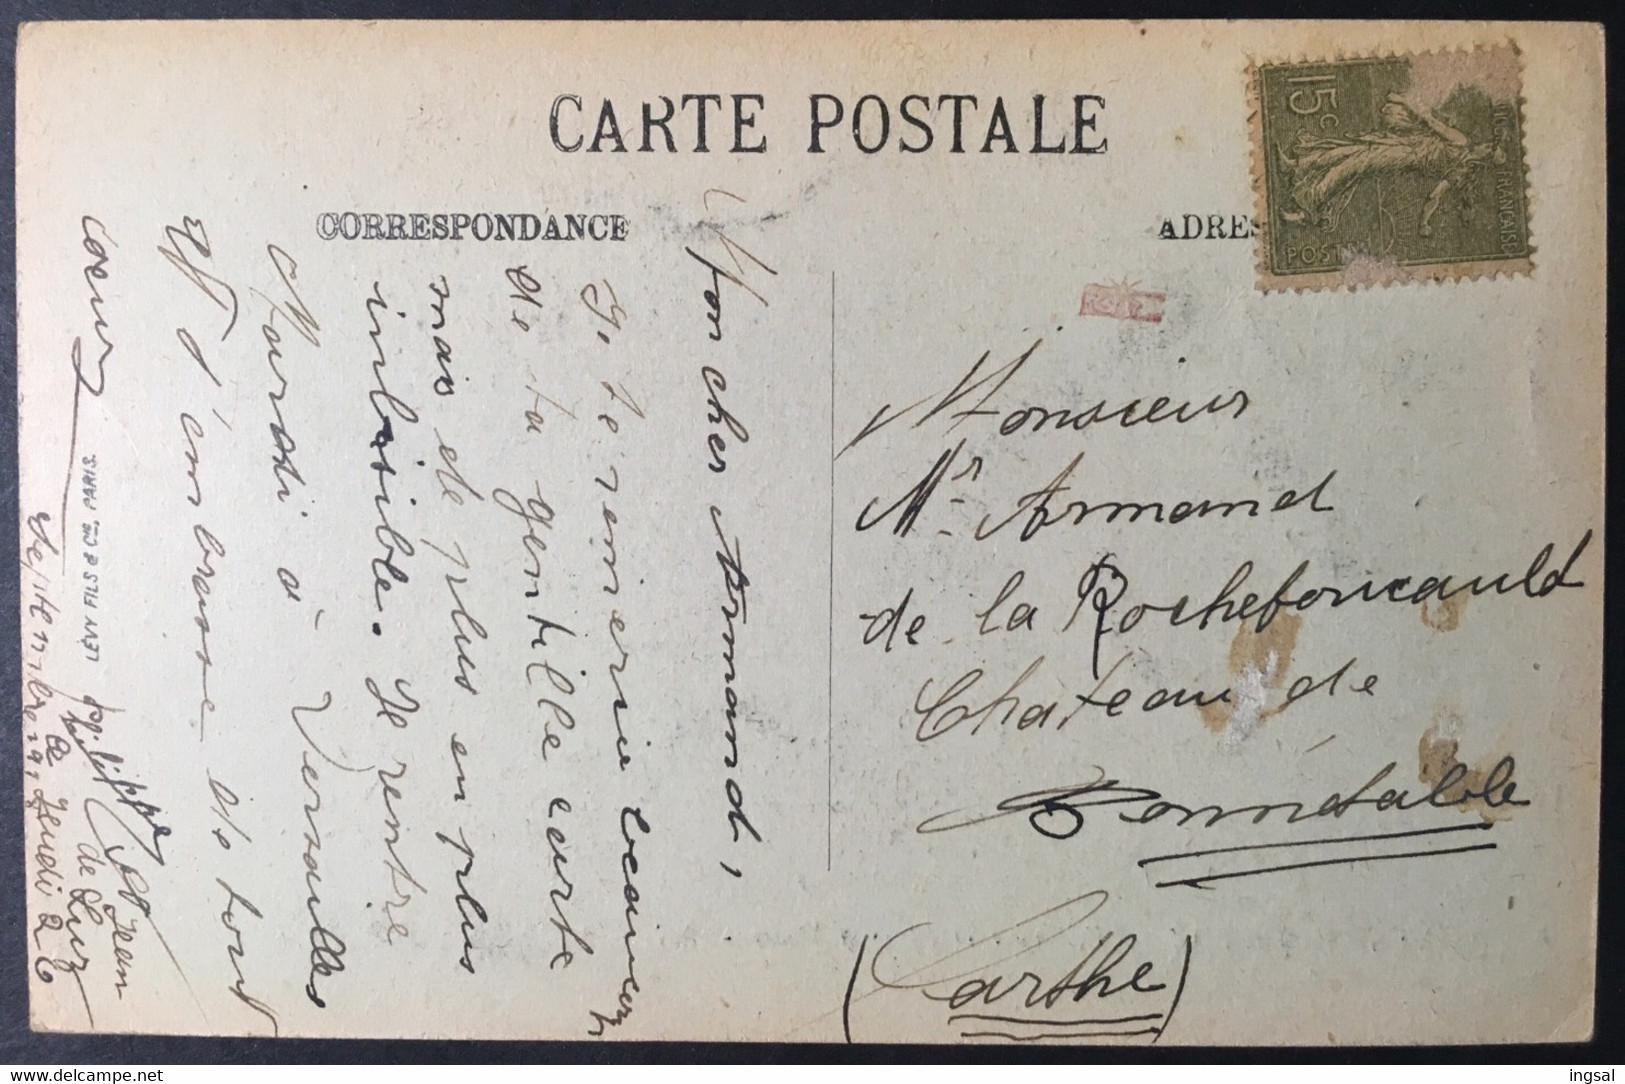 CARTE POSTALE
CORRESPONDANCE
ADRES
15c
POST
FRANÇAISE
Mon cher Armand,
Je te remercie beaucoup
de ta gentille carte
mais de plus en plus
inlisible. Je rentre
Mardi à Versailles
et t'embrasse de tout
coeur
philippe
St Jean
de Luz
ce Jeudi 26
Septembre 1929
LÉVY FILS & Cie, PARIS.
Monsieur
Mr Armand
de la Rochefoucauld
Château de
Bonnétable
(Sarthe)
ingsal